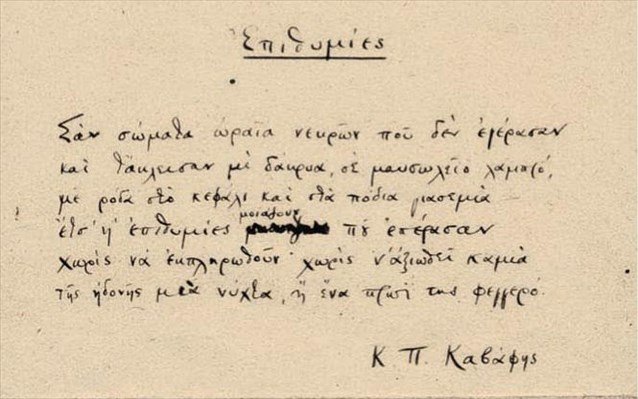 Ἐπιθυμίες
Σὰν σώματα ὡραῖα νεκρῶν ποῦ δὲν ἐγέρασαν
καὶ τἄκλεισαν μὲ δάκρυα, σὲ μαυσωλεῖο λαμπρό,
μὲ ρόδα στὸ κεφάλι καὶ στὰ πόδια γιασεμιά —
ἔτσ' ᾑ ἐπιθυμίες μοιάζουν ποῦ ἐπέρασαν
χωρὶς νὰ ἐκπληρωθοῦν· χωρὶς ν' ἀξιωθεῖ καμιὰ
τῆς ἡδονῆς μιὰ νύχτα, ἢ ἕνα πρωΐ της φεγγερό.
Κ. Π. Καβάφης